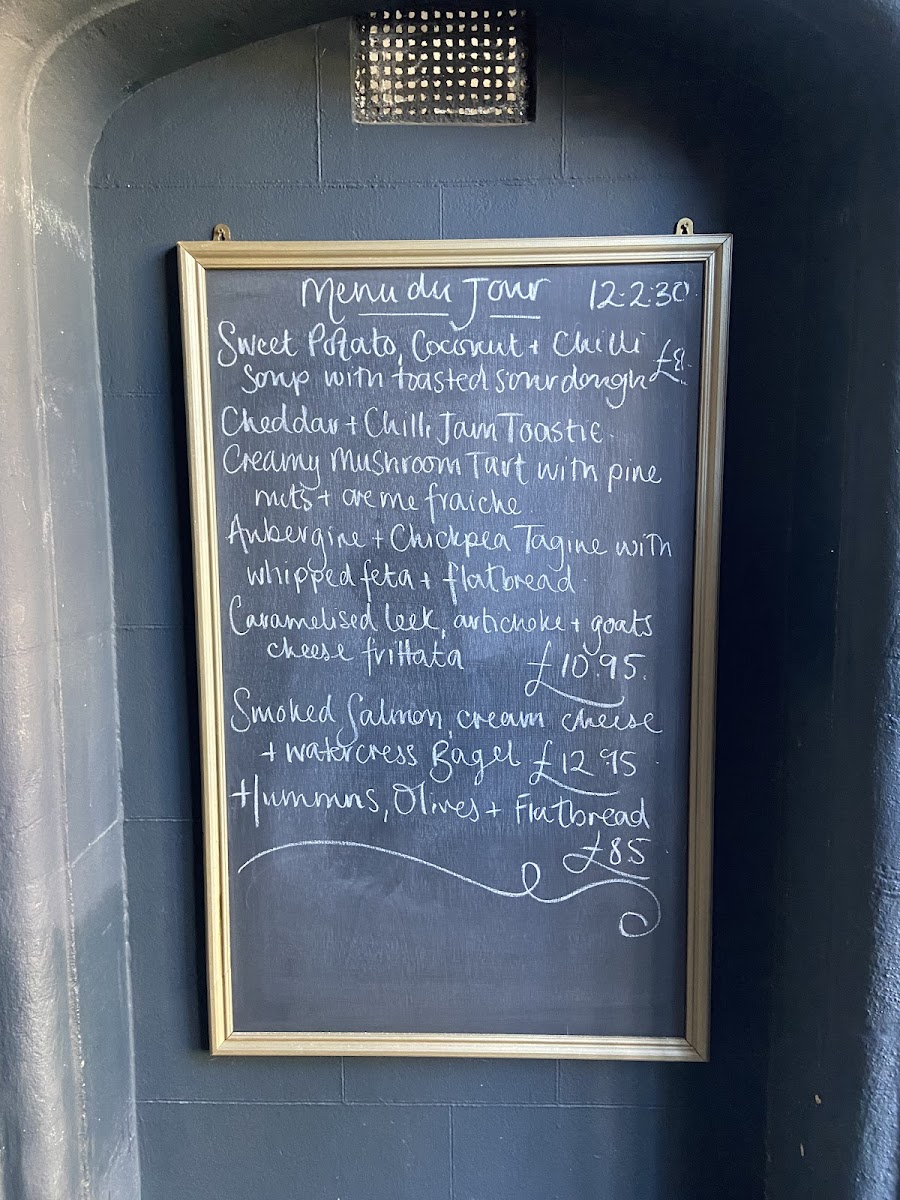 Menu du Jour 12.2.30
Sweet Potato, Coconut + Chilli
Soup with toasted sourdough £8.
Cheddar + Chilli Jam Toastie.
Creamy Mushroom Tart with pine
nuts + creme fraiche.
Aubergine + Chickpea Tagine with
whipped feta + flatbread.
Caramelised leek, artichoke + goats
cheese frittata £10.95.
Smoked Salmon, cream cheese
+ watercress Bagel £12.95
Hummus, Olives + Flatbread
£8.5